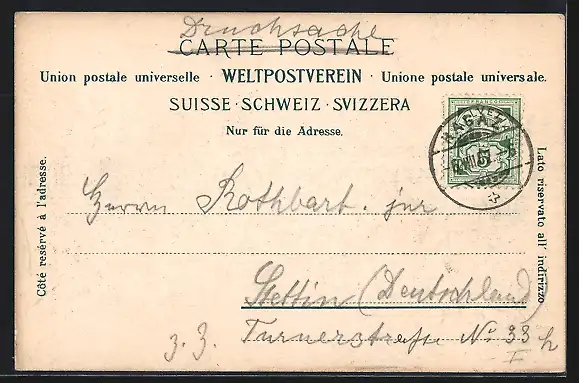 Drucksache
CARTE POSTALE
Union postale universelle · WELTPOSTVEREIN · Unione postale universale.
SUISSE · SCHWEIZ · SVIZZERA
Nur für die Adresse.
RAGAZ
Côté resérvé à l'adresse.
Lato riservato all' indirizzo
Herrn Rothbart. jur
Stettin (Deutschland)
z. Z. Turnerstraße No 33 h